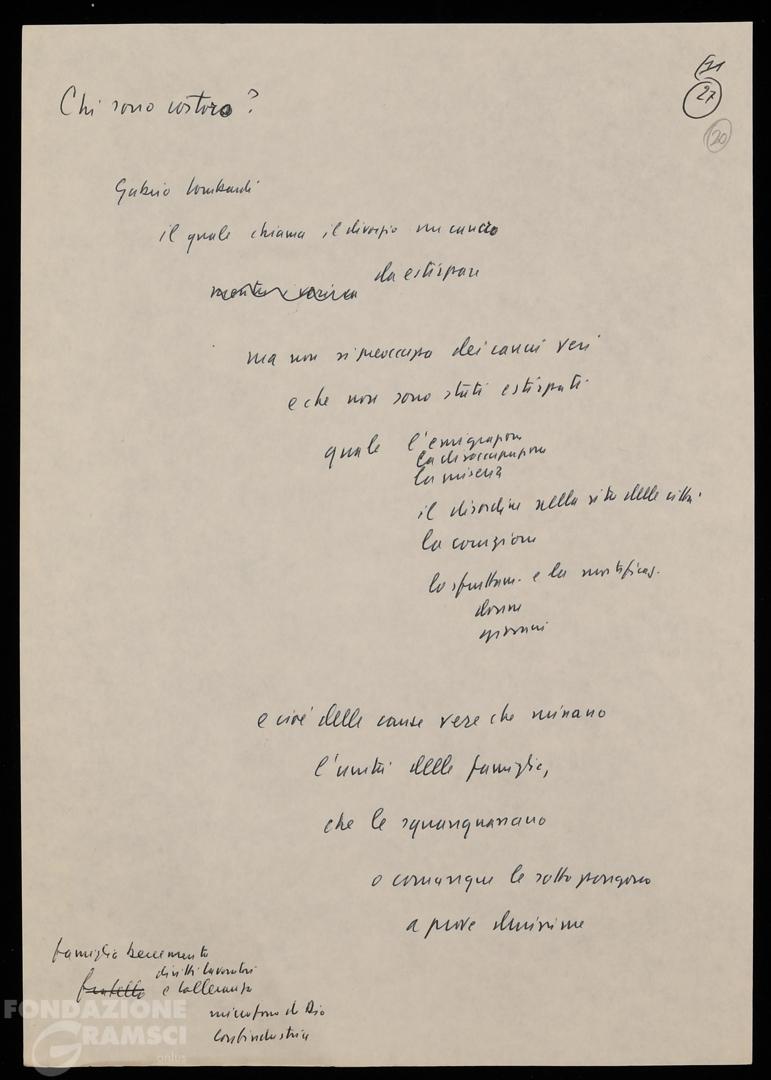 27
20
Chi sono costoro?
Gabrio Lombardi
il quale chiama il divorzio un cancro
da estirpare
ma non si preoccupa dei cancri veri
e che non sono stati estirpati
quale l'emigrazione
la disoccupazione
la miseria
il disordine nella vita delle città
la corruzione
lo sfruttam. e la mortificaz.
donne
giovani
e cioè delle cause vere che minano
l'unità delle famiglie,
che le squassano
o comunque le sottopongono
a prove durissime
famiglia
diritti lavoratori
fratello e tolleranza
microfono di Dio
Confindustria
FONDAZIONE
GRAMSCI
onlus